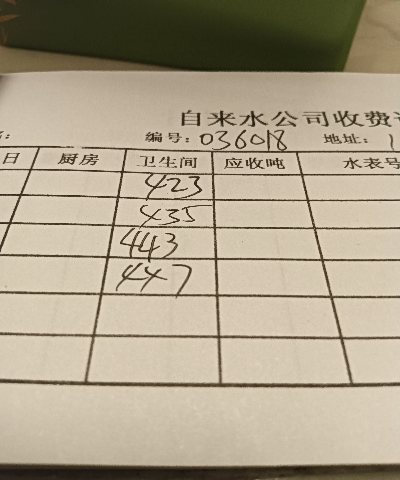 自来水公司收费
编号: 036018 地址: 1
日 厨房 卫生间 应收吨 水表号
423
435
443
447